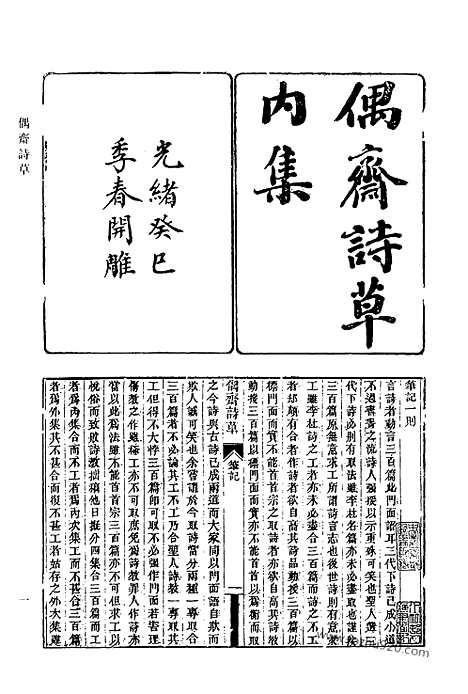 偶齋詩草
內集
光緒癸巳
季春開雕
偶齋詩草
筆記一則
言詩者動言三百篇此門面語耳三代下詩已成小道
不過書畫之流詩人強援以示重殊可笑也聖人選三
代下詩必別有取法雖李杜名篇亦未必盡取也謹按
三百篇原無意求工所謂詩言志也後世詩則有工不
工雖李杜詩之工者亦未必盡合三百篇而詩之不工
者却頗有合者作詩者欲自高其詩品動援三百篇以
標門面而實不能首首宗之取詩者亦欲自高其詩教
動援三百篇以標門面而實亦不能首首以爲衡而
偶齋詩草
筆記
一
之今詩與古詩已成兩道而大家間以門面語自欺而
欺人誠可笑也余嘗謂於今取詩當分兩種一專取其
三百篇者不必論其工不工乃合聖人詩教一專取其
工但得不大悖三百篇即可取不必強作門面莊皆理
傷教之作雖極工亦不可取庶免獨詩教罪人作詩亦
當以此爲法雖不能首首宗三百篇亦不可但求工以
梲俗而致敗詩教拙稿他日擬分四集合三百篇而工
者爲內集合而不工者爲內次集工而不甚合三百篇
者爲外集其不甚合而復不甚工者姑存之外次集雖
一